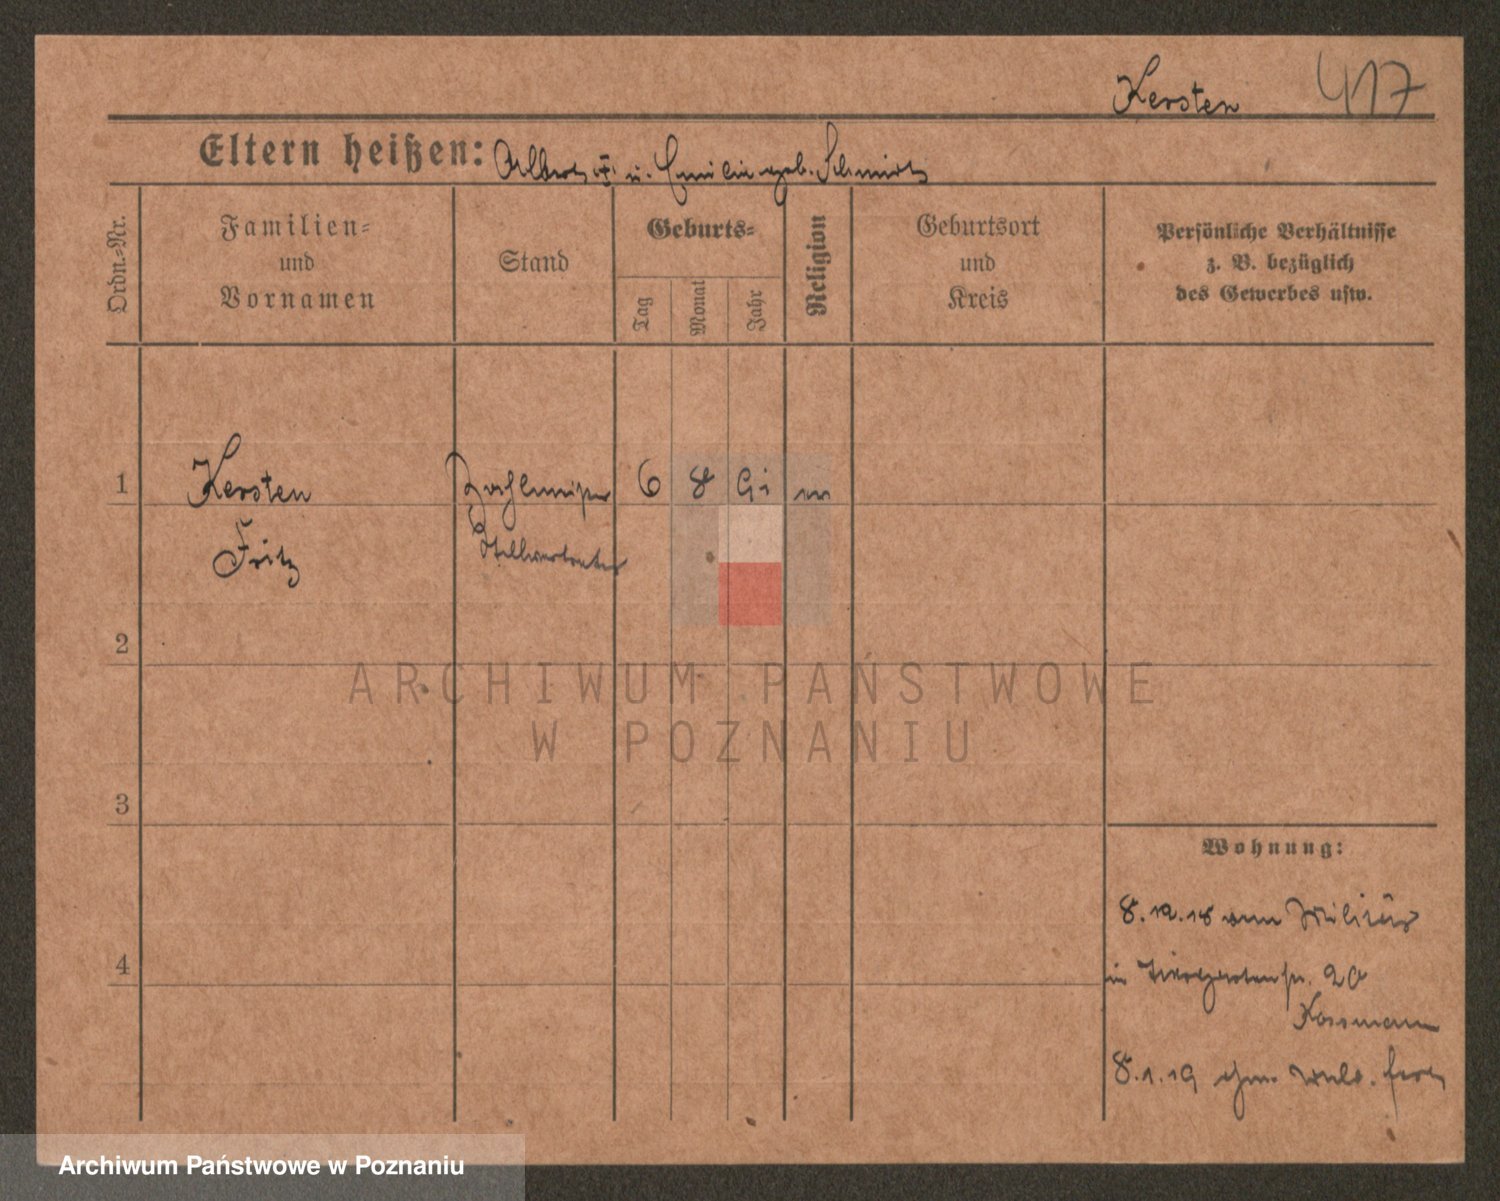 Kersten 417
Eltern heißen: Albert u. Emilie geb. Schmidt
Ordn.=Nr.
Familien=
und
Vornamen
Stand
Geburts=
Tag
Monat
Jahr
Religion
Geburtsort
und
Kreis
Persönliche Verhältnisse
z. B. bezüglich
des Gewerbes usw.
1 Kersten 6 8
Fritz Stellvertreter
2
ARCHIWUM PAŃSTWOWE
W POZNANIU
3
Wohnung:
8.12.18 vom Militär
4
in Tiergartenstr. 20
Kossmann
8.1.19
Archiwum Państwowe w Poznaniu